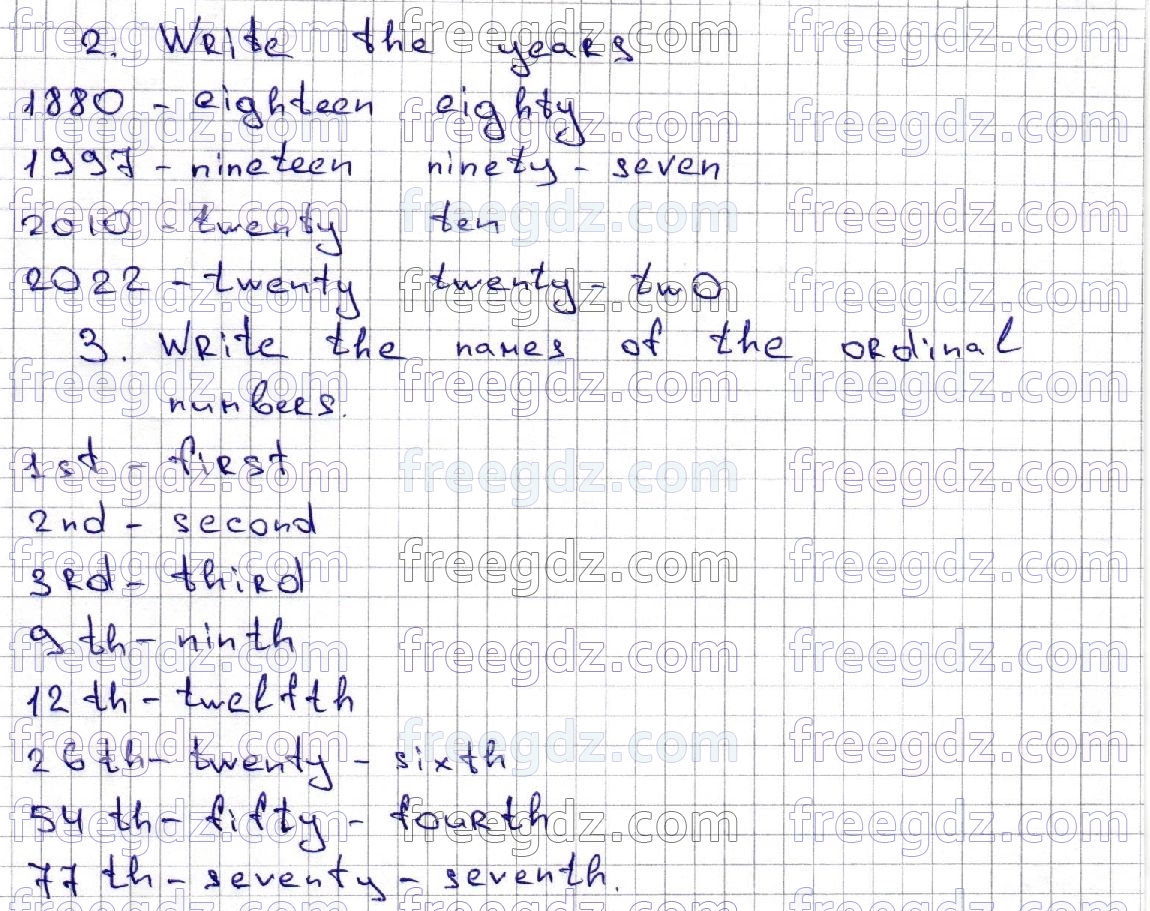 2. Write the years
1880 - eighteen eighty
1997 - nineteen ninety - seven
2010 - twenty ten
2022 - twenty twenty - two
3. Write the names of the ordinal
numbers.
1st - first
2nd - second
3rd - third
9th - ninth
12th - twelfth
26th - twenty - sixth
54th - fifty - fourth
77th - seventy - seventh.
freegdz.com